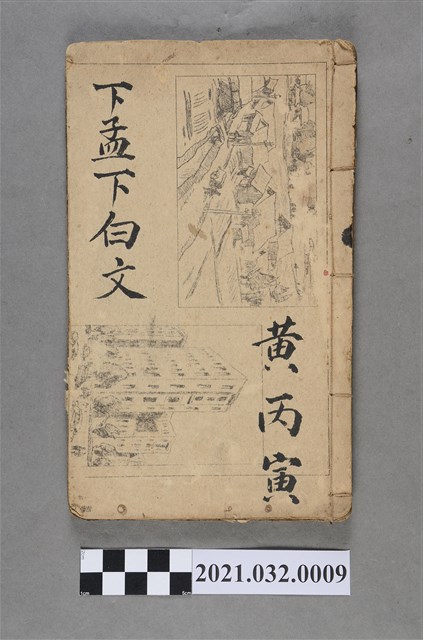 黄丙寅
下孟下白文
2021.032.0009
1cm
5cm